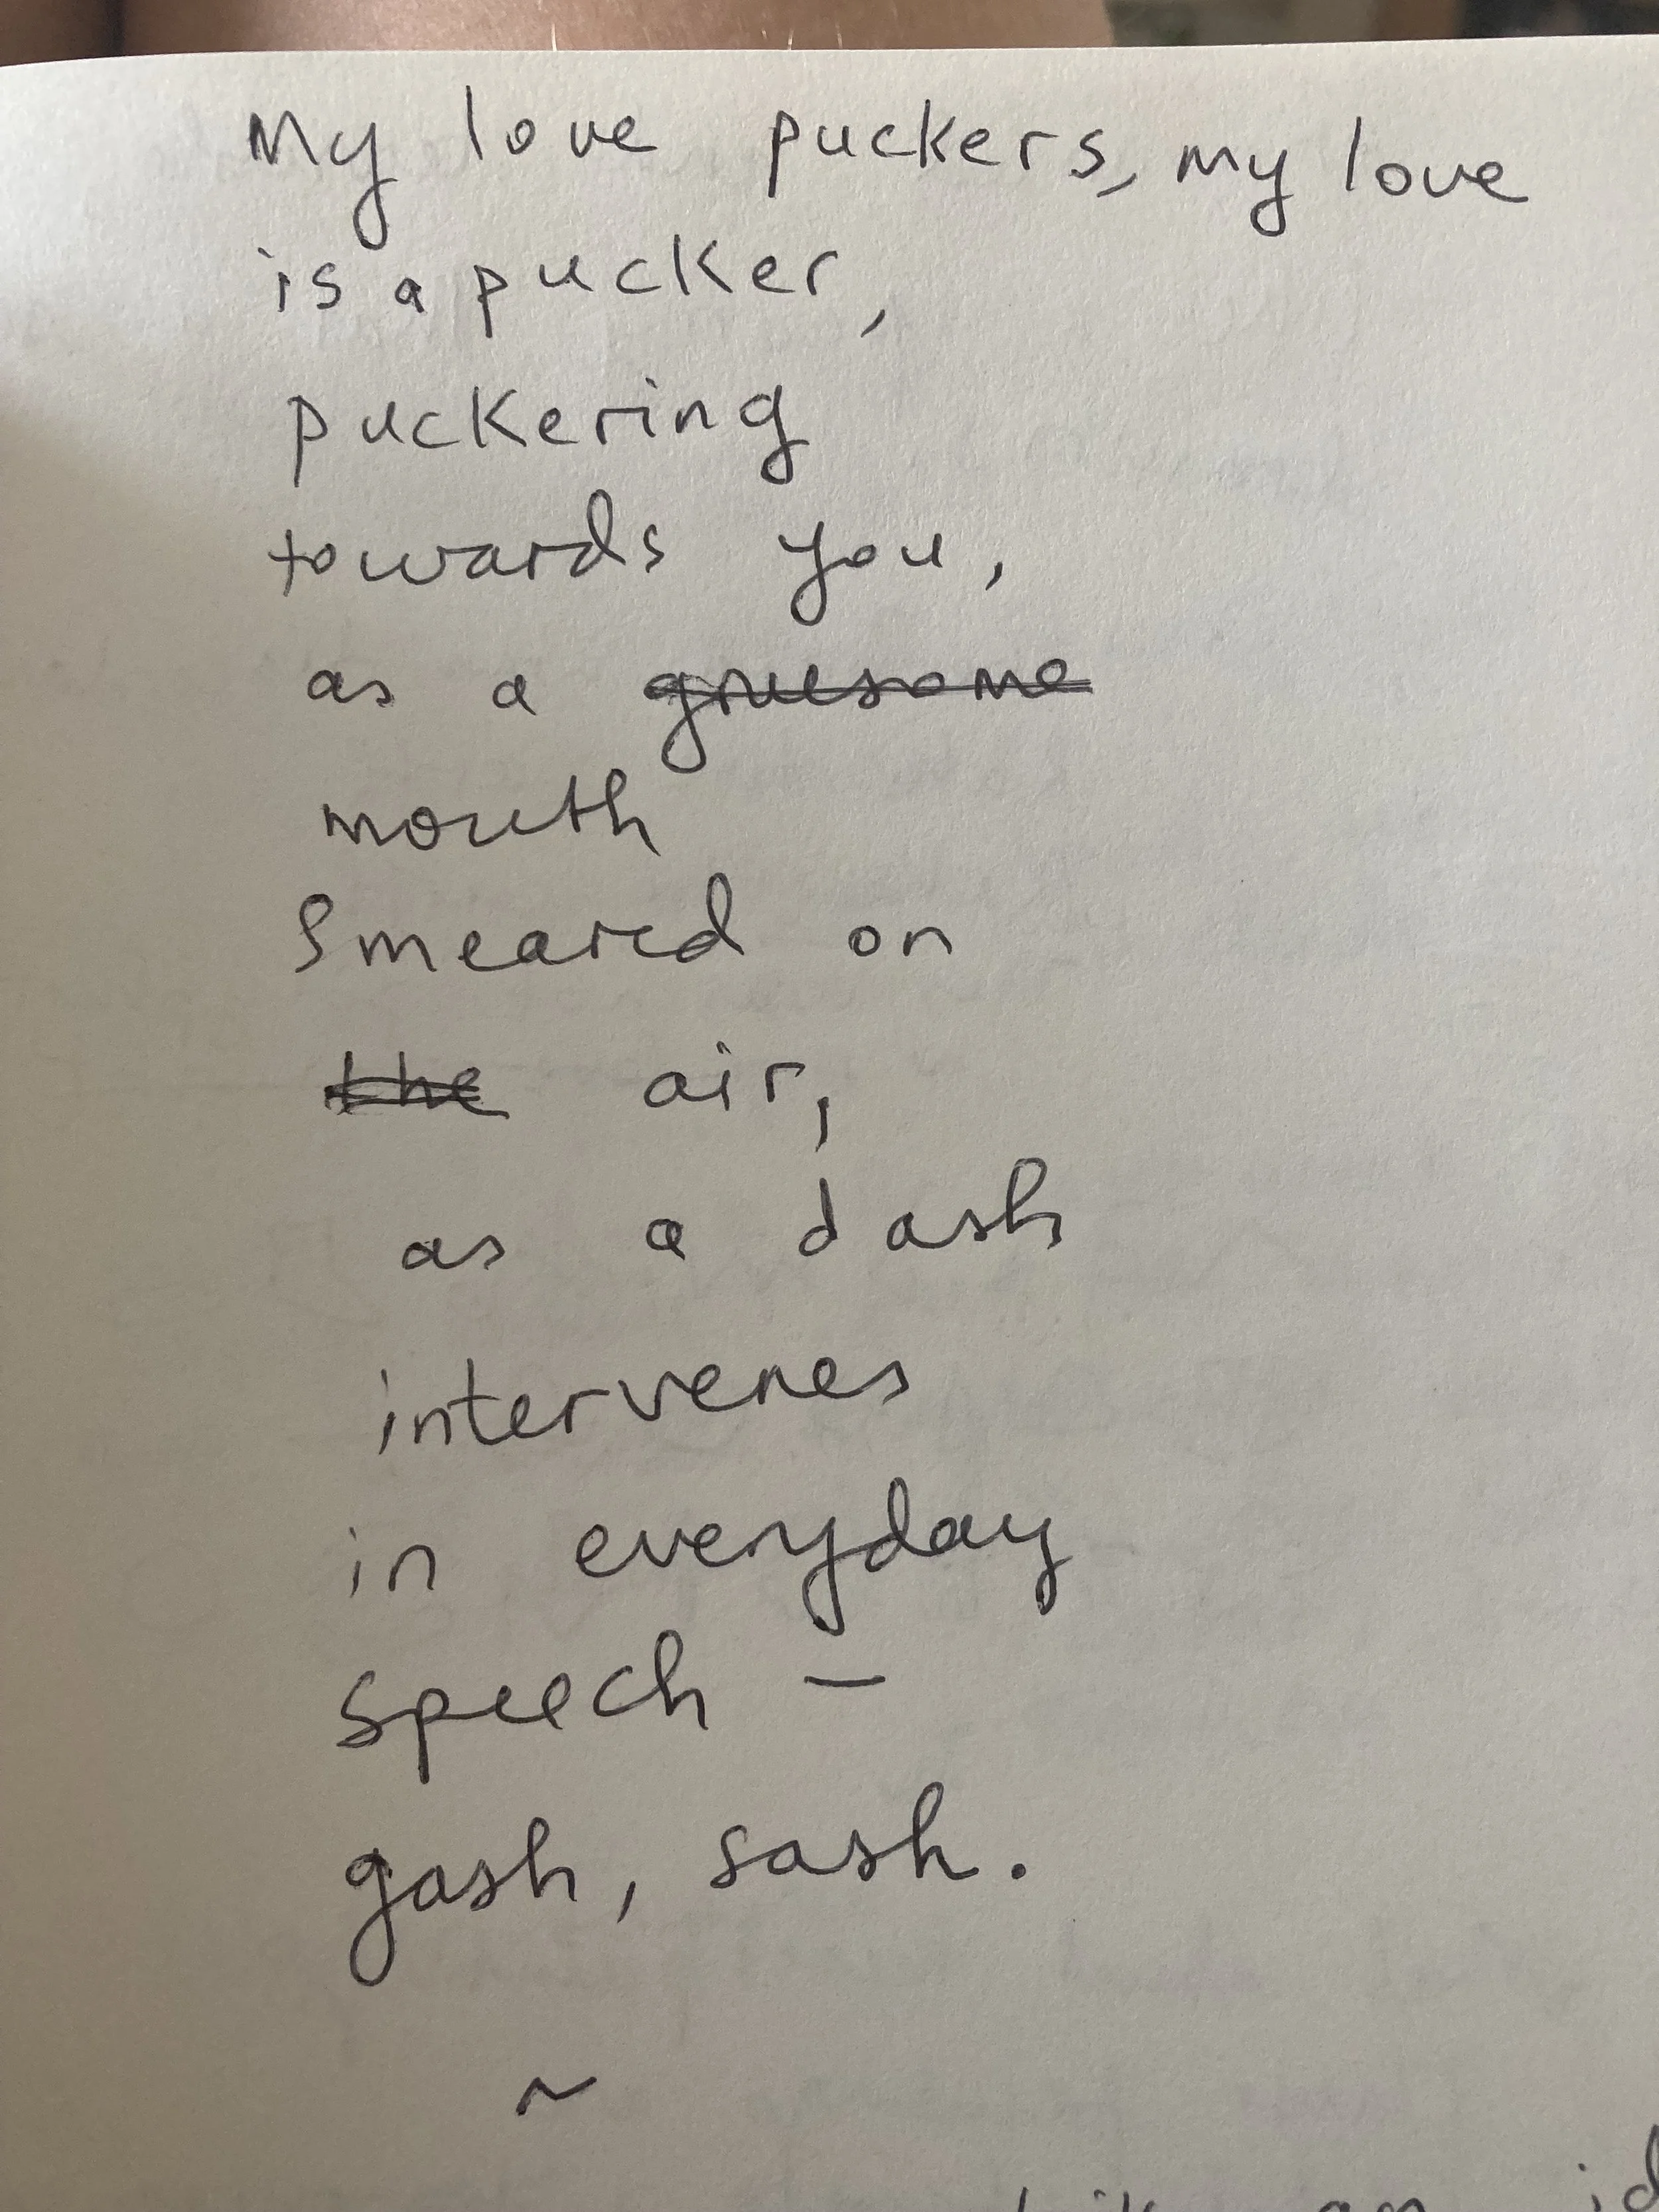 My love puckers, my love
is a pucker,
puckering
towards you,
as a gruesome
mouth
Smeared on
the air,
as a dash
intervenes
in everyday
speech —
gash, sash.
~
an